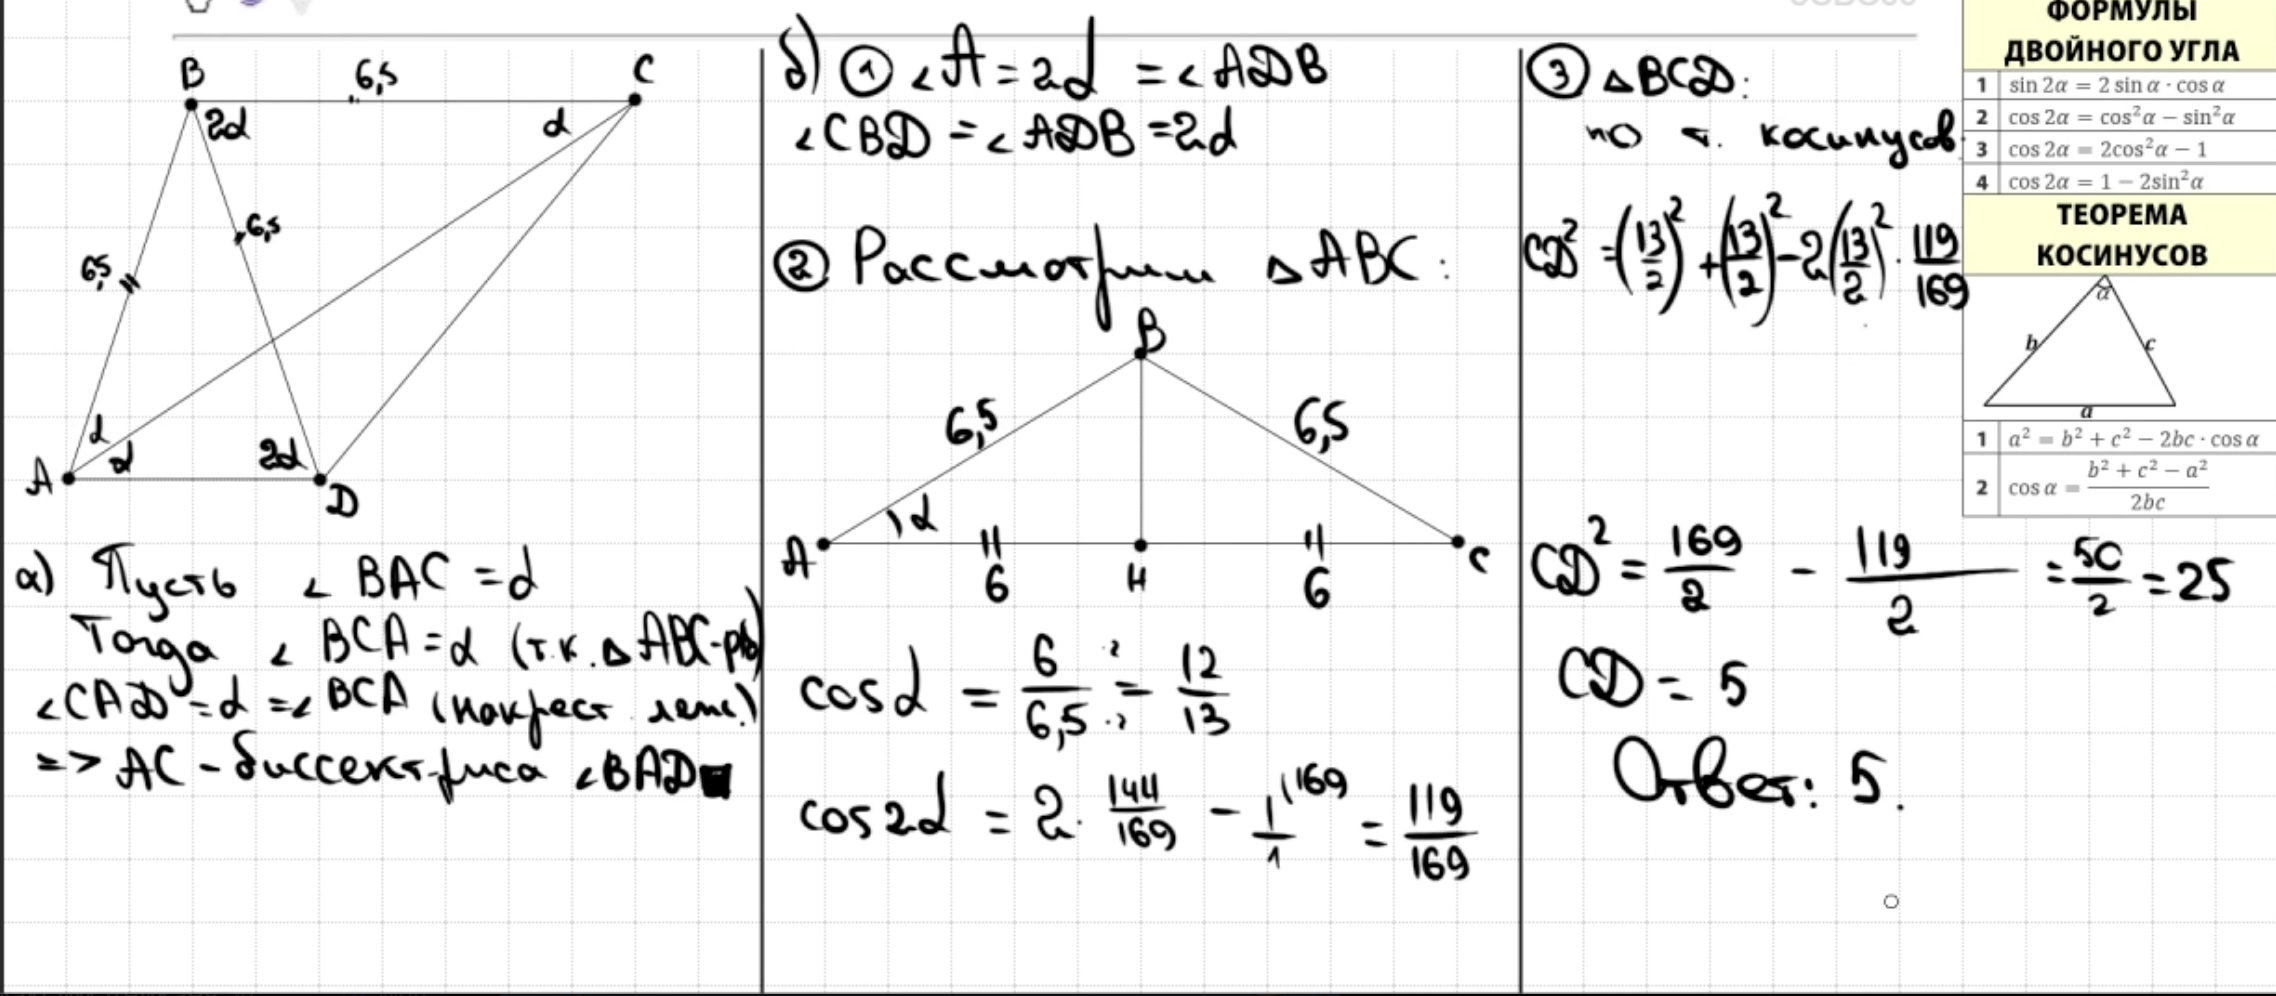 B 6,5 C
2α α
6,5
6,5
α
α 2α
A D
а) Пусть ∠ BAC = α
Тогда ∠ BCA = α (т.к. △ ABC - рб)
∠CAD = α = ∠ BCA (накрест леж.)
=> AC - биссектриса ∠BAD
б) ① ∠A = 2α = ∠ADB
∠CBD = ∠ADB = 2α
② Рассмотрим △ABC:
B
6,5 6,5
α
A H C
6 6
cosα = 6/6,5 = 12/13
cos2α = 2 · 144/169 - 1/1 ^169 = 119/169
③ △BCD:
по т. косинусов
CD² = (13/2)² + (13/2)² - 2(13/2)² · 119/169
CD² = 169/2 - 119/2 = 50/2 = 25
CD = 5
Ответ: 5.
ФОРМУЛЫ
ДВОЙНОГО УГЛА
1 sin 2α = 2 sin α · cos α
2 cos 2α = cos²α − sin²α
3 cos 2α = 2cos²α − 1
4 cos 2α = 1 − 2sin²α
ТЕОРЕМА
КОСИНУСОВ
α
b c
a
1 a² = b² + c² − 2bc · cos α
2 cos α = (b² + c² − a²)/2bc